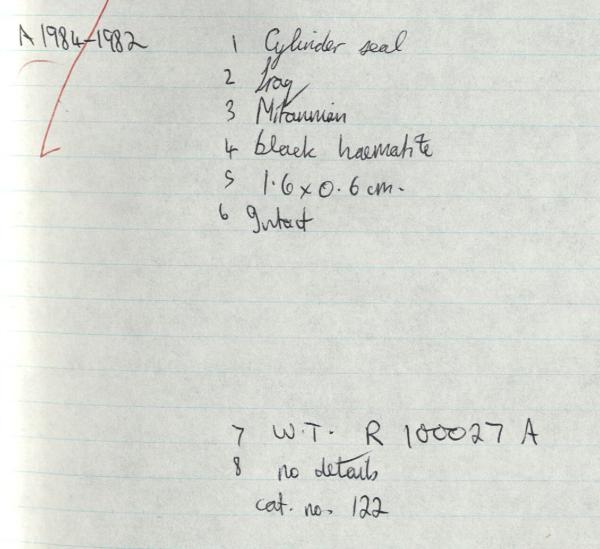 A 1984-1982
1 Cylinder seal
2 Iraq
3 Mitannian
4 black haematite
5 1.6 x 0.6 cm.
6 Intact
7 W.T. R 100027 A
8 no details
cat. no. 122